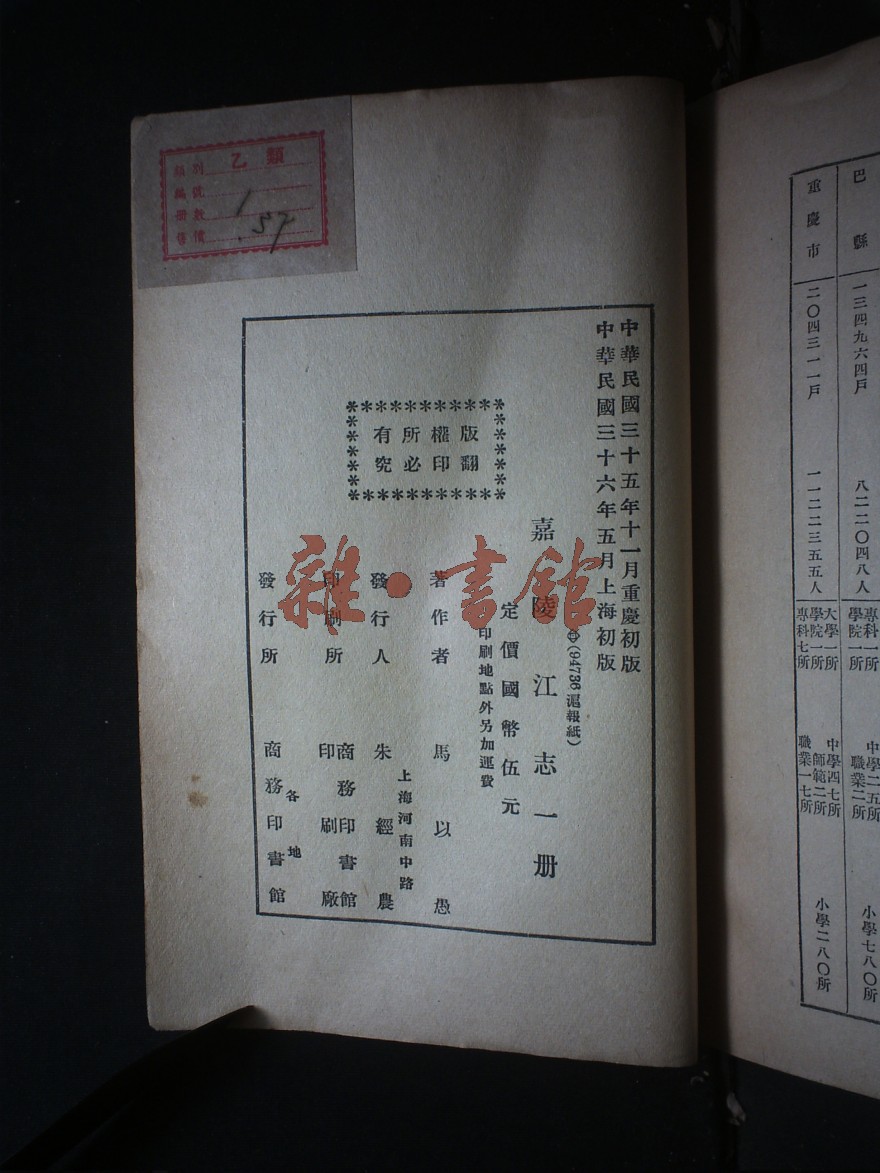 中華民國三十五年十一月重慶初版
中華民國三十六年五月上海初版
(94736滬報紙)
嘉陵江志一册
定價國幣伍元
印刷地點外另加運費
版權所有
翻印必究
著作者 馬以愚
發行人 朱經農
上海河南中路
印刷所 商務印書館印刷廠
各地
發行所 商務印書館
類別 乙類
編號
册數 1
售價 .57
雜·書館
巴縣 一三四九六四戶 八二二〇四八人 專科一所 學院一所 中學二五所 職業二所 小學七八〇所
重慶市 二〇四三一一戶 一一二二三五五人 大學一所 學院一所 專科七所 中學四七所 師範二所 職業一七所 小學二八〇所